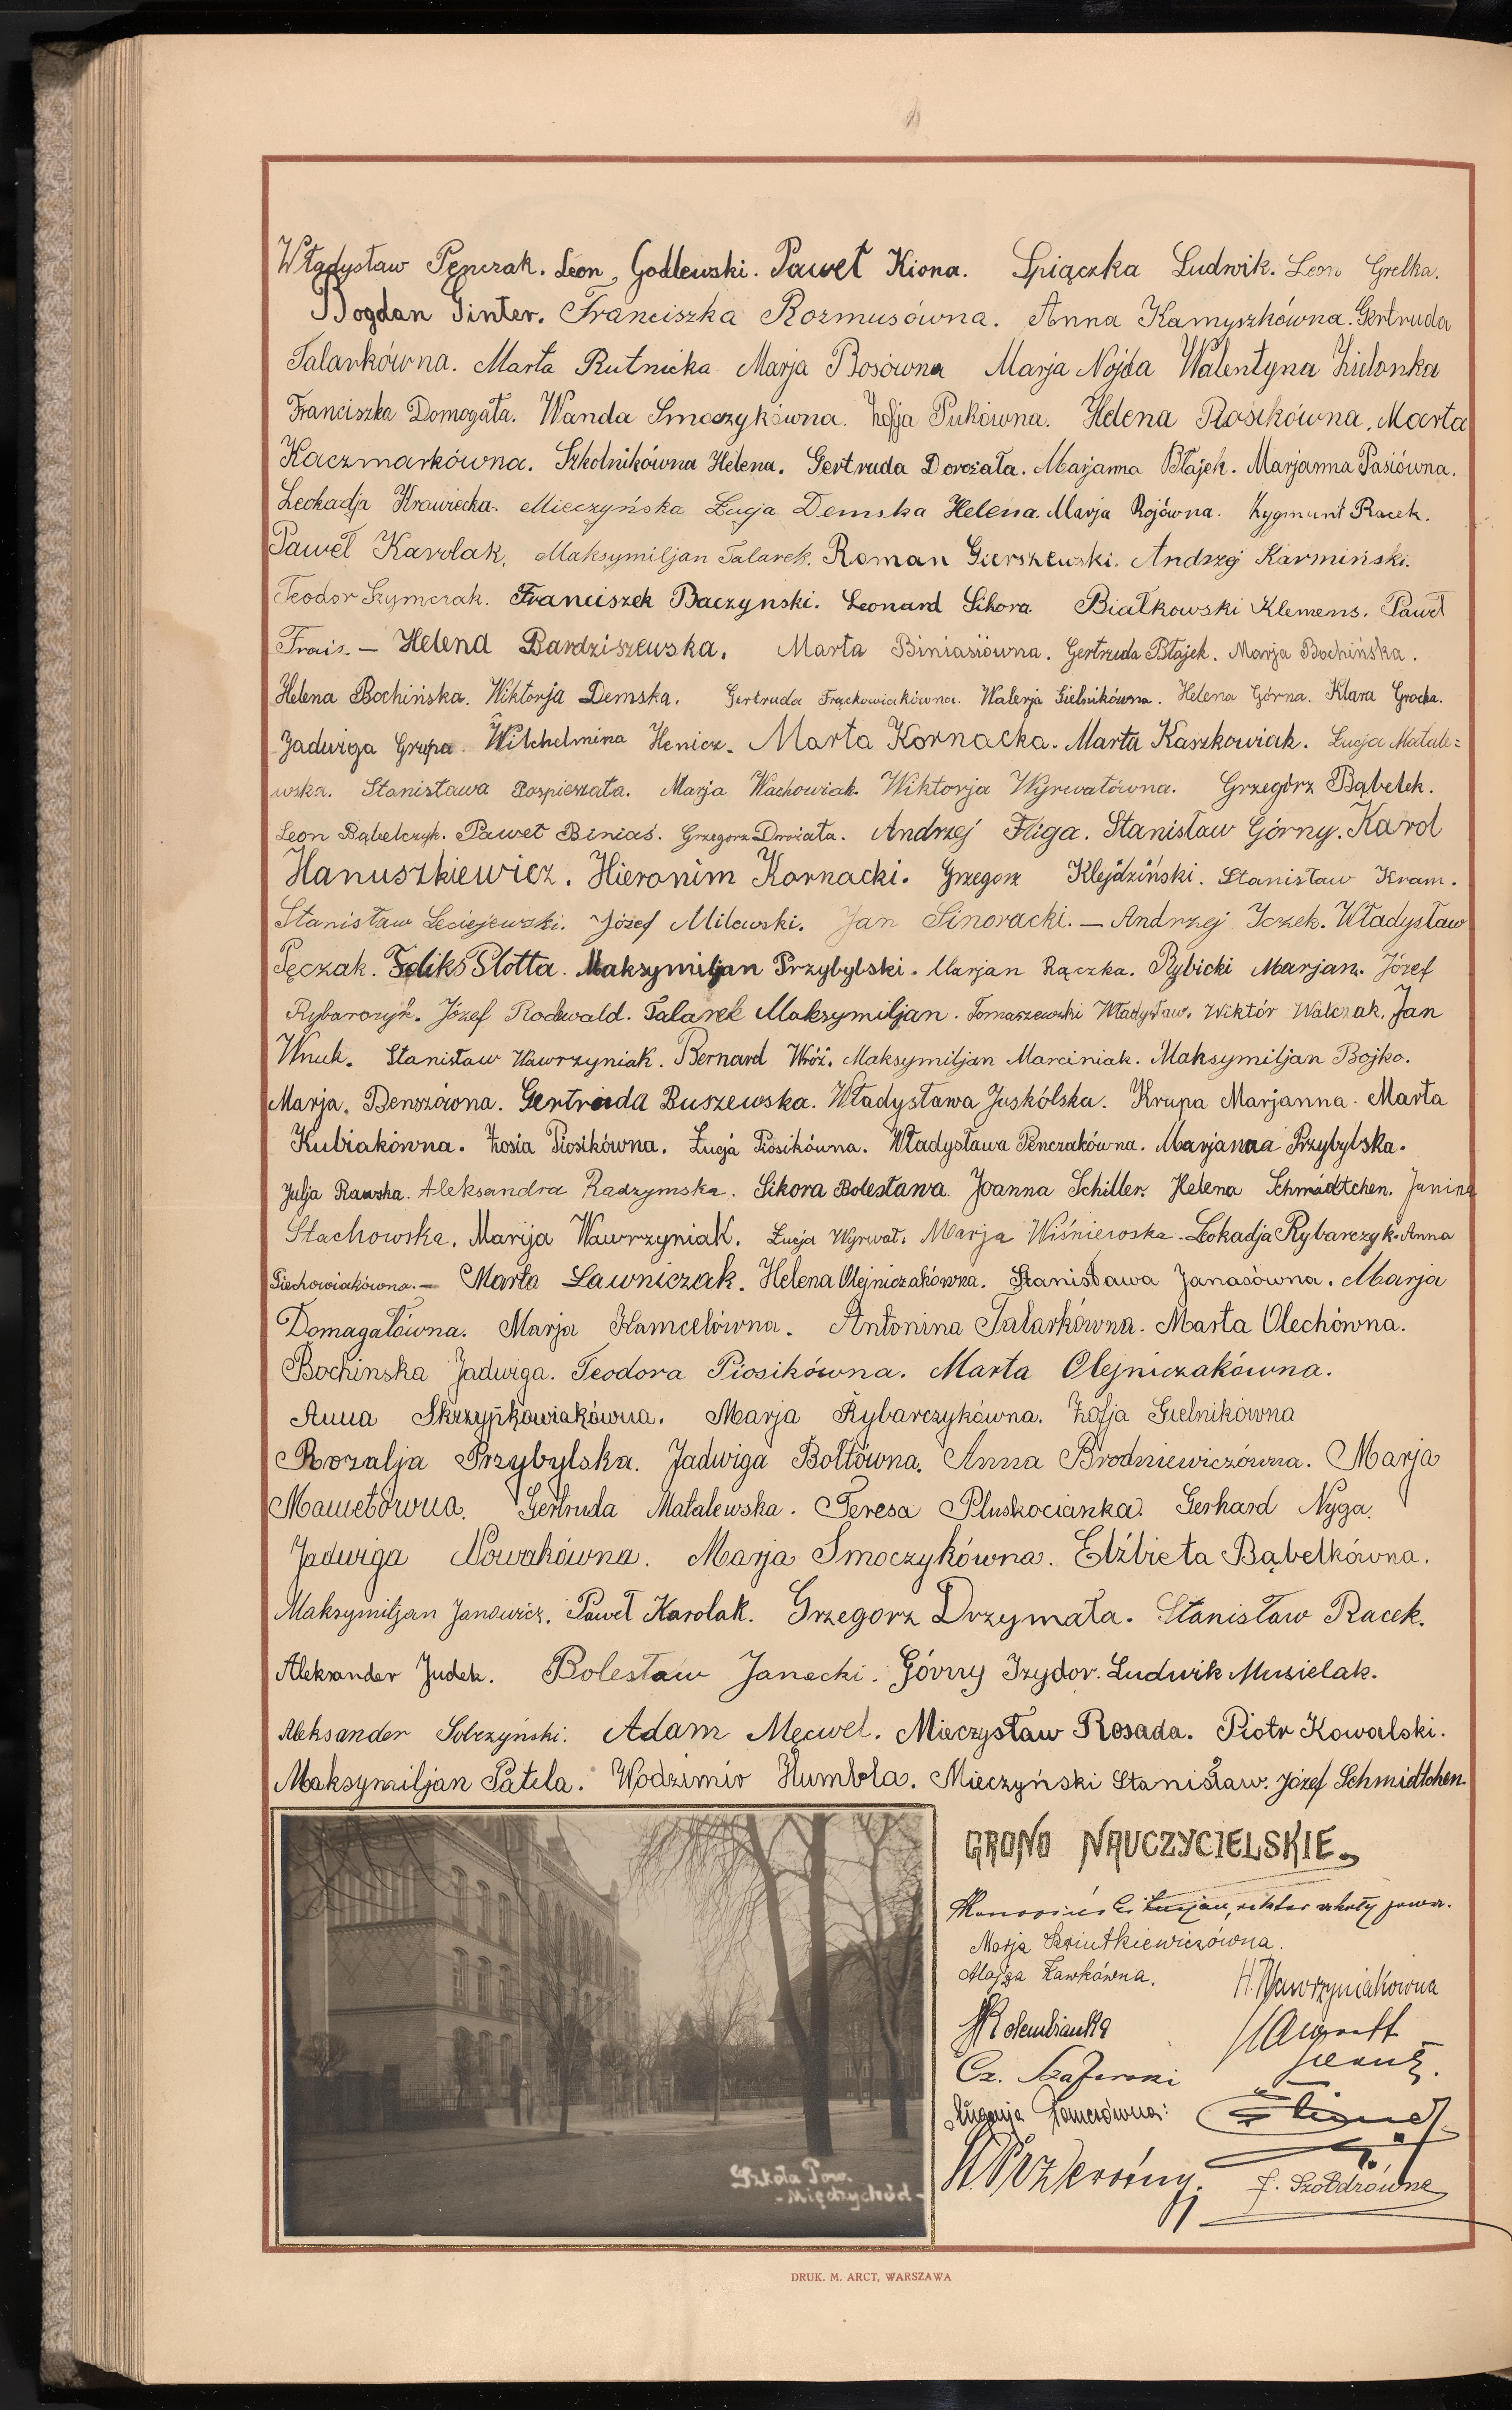 Władysław Pęnczak. Leon Godlewski. Paweł Kiona. Śpiączka Ludwik. Leon Grelka.
Bogdan Ginter. Franciszka Rozmusówna. Anna Kamyszkówna. Gertruda
Talarkówna. Marta Rutnicka Marja Bosówna Marja Nojda Walentyna Zielonka
Franciszka Domogała. Wanda Smoczykówna. Zofja Pukówna. Helena Piosikówna. Marta
Kaczmarkówna. Szkolnikówna Helena. Gertruda Dorożała. Marjanna Błajek. Marjanna Pasiówna.
Leokadja Krawiecka. Mieczyńska Łucja Demska Helena. Marja Rojówna. Zygmunt Racek.
Paweł Karolak. Maksymiljan Talarek. Roman Gierszewski. Andrzej Karmiński.
Teodor Szymczak. Franciszek Baczynski. Leonard Sikora Białkowski Klemens. Paweł
Frais. — Helena Bardziszewska. Marta Biniasiówna. Gertruda Błajek. Marja Bochińska.
Helena Bochińska. Wiktorja Demska. Gertruda Frąckowiakówna. Walerja Gielnikówna. Helena Górna. Klara Grocka.
Jadwiga Grupa. Wilchelmina Henicz. Marta Kornacka. Marta Kaszkowiak. Łucja Matale=
wska. Stanisława Pospieszała. Marja Wachowiak. Wiktorja Wyrwałówna. Grzegórz Bąbelek.
Leon Bąbelczyk. Paweł Biniaś. Grzegorz Andrzej Fliga. Stanisław Górny. Karol
Hanuszkiewicz. Hieronim Kornacki. Grzegorz Klejdziński. Stanisław Kram.
Stanisław Leciejewski. Józef Milewski. Jan Sinoracki. — Andrzej Jczek. Władysław
Pęczak. Feliks Plotta. Maksymiljan Przybylski. Marjan Rączka. Rybicki Marjan. Józef
Rybarczyk. Józef Rodewald. Talarek Maksymiljan. Tomaszewski Władysław. Wiktór Walczak. Jan
Wnuk. Stanisław Wawrzyniak. Bernard Wróż. Maksymiljan Marciniak. Maksymiljan Bojko.
Marja. Benszówna. Gertruda Buszewska. Władysława Juskólska. Krupa Marjanna. Marta
Kubiakówna. Zosia Piosikówna. Łucja Piosikówna. Władysława Penczakówna. Marjanna Przybylska.
Julja Rawska. Aleksandra Radzymska. Sikora Bolesława. Joanna Schiller. Helena Schmidtchen. Janina
Stachowska. Marija Wawrzyniak. Łucja Wyrwał. Marja Wiśniewska. Leokadja Rybarczyk. Anna
Piechowiakówna. — Marta Ławniczak. Helena Olejniczakówna. Stanisława Janasówna. Marja
Domagałówna. Marja Hamcelówna. Antonina Talarkówna. Marta Olechówna.
Bochinska Jadwiga. Teodora Piosikówna. Marta Olejniczakówna.
Anna Skrzypkowiakówna. Marja Rybarczykówna. Zofja Gielnikówna
Rozalja Przybylska. Jadwiga Bołtówna. Anna Brodniewiczówna. Marja
Mawelówna. Gertruda Matalewska. Teresa Pluskocianka. Gerhard Nyga.
Jadwiga Nowakówna. Marja Smoczykówna. Elżbieta Bąbelkówna.
Maksymiljan Janowicz. Paweł Karolak. Grzegorz Drzymała. Stanisław Racek.
Aleksander Judek. Bolesław Janecki. Górny Izydor. Ludwik Musielak.
Aleksander Sobczyński. Adam Męcwel. Mieczysław Rosada. Piotr Kowalski.
Maksymiljan Patela. Wodzimir Humbla. Mieczyński Stanisław. Józef Schmidtchen.
GRONO NAUCZYCIELSKIE.
Lucjan, rektor szkoły pow.
Marja Szriutkiewiczówna.
Alojza Ławkówna.
H. Wawrzyniakówna
Kolembianka
Cz. Szaferski
Eugenja
J. Szołdrówna
Szkoła Pow.
- Międzychód -
DRUK. M. ARCT, WARSZAWA